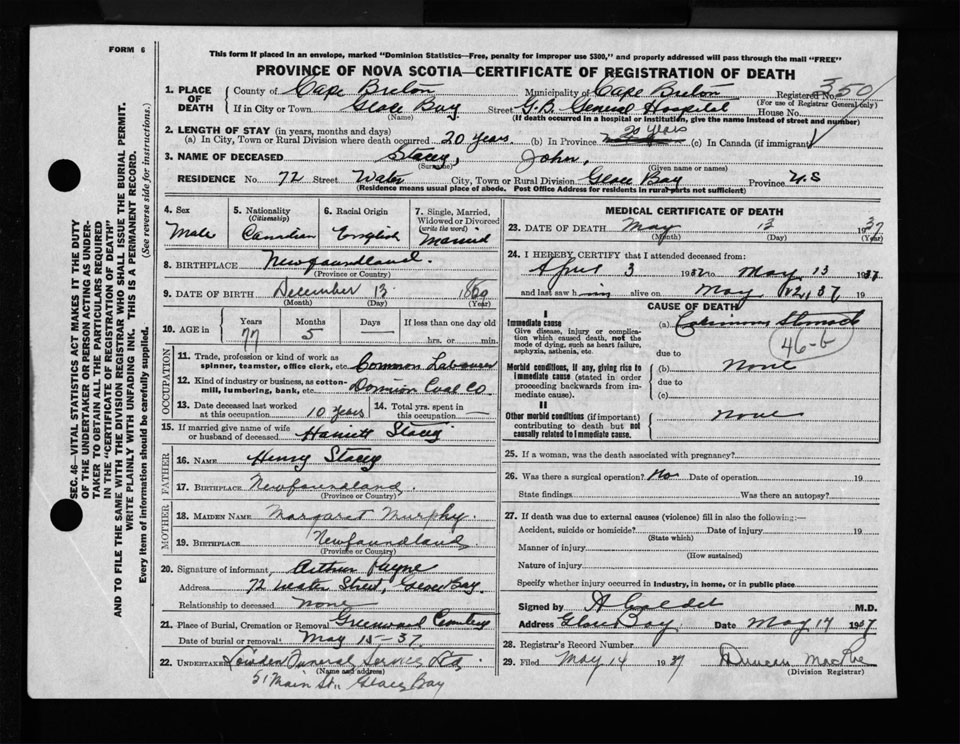 FORM 6
This form if placed in an envelope, marked "Dominion Statistics—Free, penalty for improper use $300," and properly addressed will pass through the mail "FREE"
PROVINCE OF NOVA SCOTIA—CERTIFICATE OF REGISTRATION OF DEATH
1. PLACE OF DEATH
County of Cape Breton Municipality of Cape Breton Registered No. 350
(For use of Registrar General only)
If in City or Town Glace Bay Street G.B. General Hospital House No.
(Name) (If death occurred in a hospital or institution, give the name instead of street and number)
2. LENGTH OF STAY (in years, months and days)
(a) In City, Town or Rural Division where death occurred 20 years. (b) In Province 20 years (c) In Canada (if immigrant)
3. NAME OF DECEASED Stacey, John,
(Surname) (Given name or names)
RESIDENCE No. 72 Street Water City, Town or Rural Division Glace Bay Province N.S
(Residence means usual place of abode. Post Office Address for residents in rural parts not sufficient)
4. Sex Male
5. Nationality (Citizenship) Canadian
6. Racial Origin English
7. Single, Married, Widowed or Divorced (write the word) Married
8. BIRTHPLACE Newfoundland.
(Province or Country)
9. DATE OF BIRTH December 13 1860
(Month) (Day) (Year)
10. AGE in Years Months Days If less than one day old
77 5 — hrs. or min.
OCCUPATION
11. Trade, profession or kind of work as spinner, teamster, office clerk, etc. Common Labourer
12. Kind of industry or business, as cotton-mill, lumbering, bank, etc. Dominion Coal Co.
13. Date deceased last worked at this occupation 10 years 14. Total yrs. spent in this occupation —
15. If married give name of wife or husband of deceased Harriett Stacey
FATHER
16. NAME Henry Stacey
17. BIRTHPLACE Newfoundland.
(Province or Country)
MOTHER
18. MAIDEN NAME Margaret Murphy.
19. BIRTHPLACE Newfoundland
(Province or Country)
20. Signature of informant Arthur Payne
Address 72 Water Street, Glace Bay.
Relationship to deceased None
21. Place of Burial, Cremation or Removal Greenwood Cemetery
Date of burial or removal May 15-37.
22. UNDERTAKER Funeral Service Ltd.
(Name and address)
51 Main St., Glace Bay
MEDICAL CERTIFICATE OF DEATH
23. DATE OF DEATH May 13 1937
(Month) (Day) (Year)
24. I HEREBY CERTIFY that I attended deceased from:
April 3 1937 to May 13 1937
and last saw him alive on May 12, 37 19
CAUSE OF DEATH
I
Immediate cause
Give disease, injury or complication which caused death, not the mode of dying, such as heart failure, asphyxia, asthenia, etc.
(a) Carcinoma Stomach
46-G
due to
Morbid conditions, if any, giving rise to immediate cause (stated in order proceeding backwards from immediate cause).
(b) None
due to
(c)
II
Other morbid conditions (if important) contributing to death but not causally related to immediate cause.
none
25. If a woman, was the death associated with pregnancy?
26. Was there a surgical operation? No Date of operation 19
State findings Was there an autopsy?
27. If death was due to external causes (violence) fill in also the following:—
Accident, suicide or homicide? Date of injury 19
(State which)
Manner of injury
(How sustained)
Nature of injury
Specify whether injury occurred in industry, in home, or in public place
Signed by A Calder M.D.
Address Glace Bay Date May 14 1937
28. Registrar's Record Number
29. Filed May 14 1937 Duncan MacRae
(Division Registrar)
SEC. 46—VITAL STATISTICS ACT MAKES IT THE DUTY
OF THE UNDERTAKER OR PERSON ACTING AS UNDER-
TAKER TO OBTAIN ALL THE PARTICULARS REQUIRED
IN THE "CERTIFICATE OF REGISTRATION OF DEATH"
AND TO FILE THE SAME WITH THE DIVISION REGISTRAR WHO SHALL ISSUE THE BURIAL PERMIT.
WRITE PLAINLY WITH UNFADING INK. THIS IS A PERMANENT RECORD.
Every item of information should be carefully supplied. (See reverse side for instructions.)